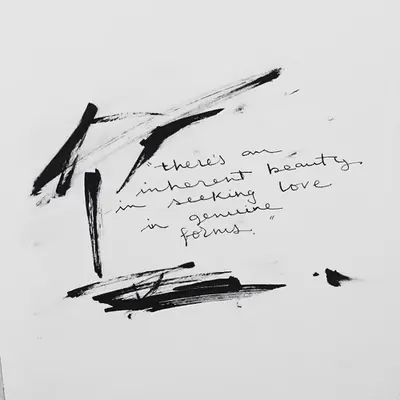 "there's an
inherent beauty
in seeking love
in genuine
forms."